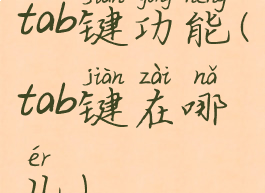 tab键功能(
jiàn zài nǎ
tab键在哪
ér